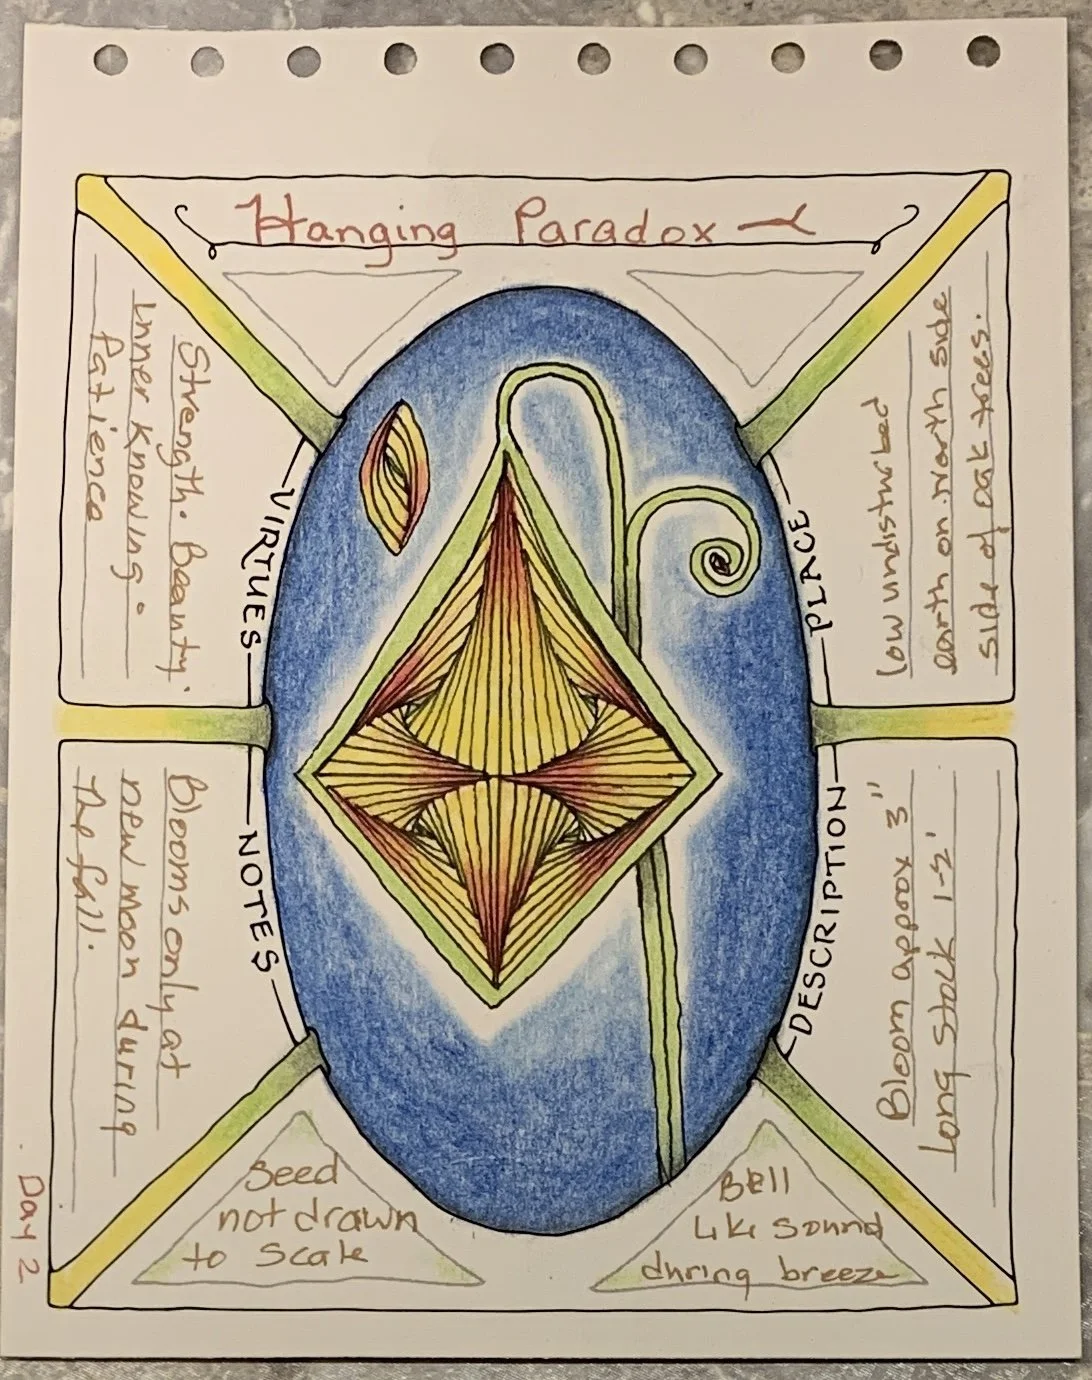 Hanging Paradox
VIRTUES
Strength. Beauty.
Inner Knowing.
Patience
PLACE
Low undisturbed
earth on North side
side of oak trees.
NOTES
Blooms only at
new moon during
the fall.
DESCRIPTION
Bloom approx 3"
Long Stock 1-2'
Seed
not drawn
to scale
Bell
Like sound
during breeze
Day 2